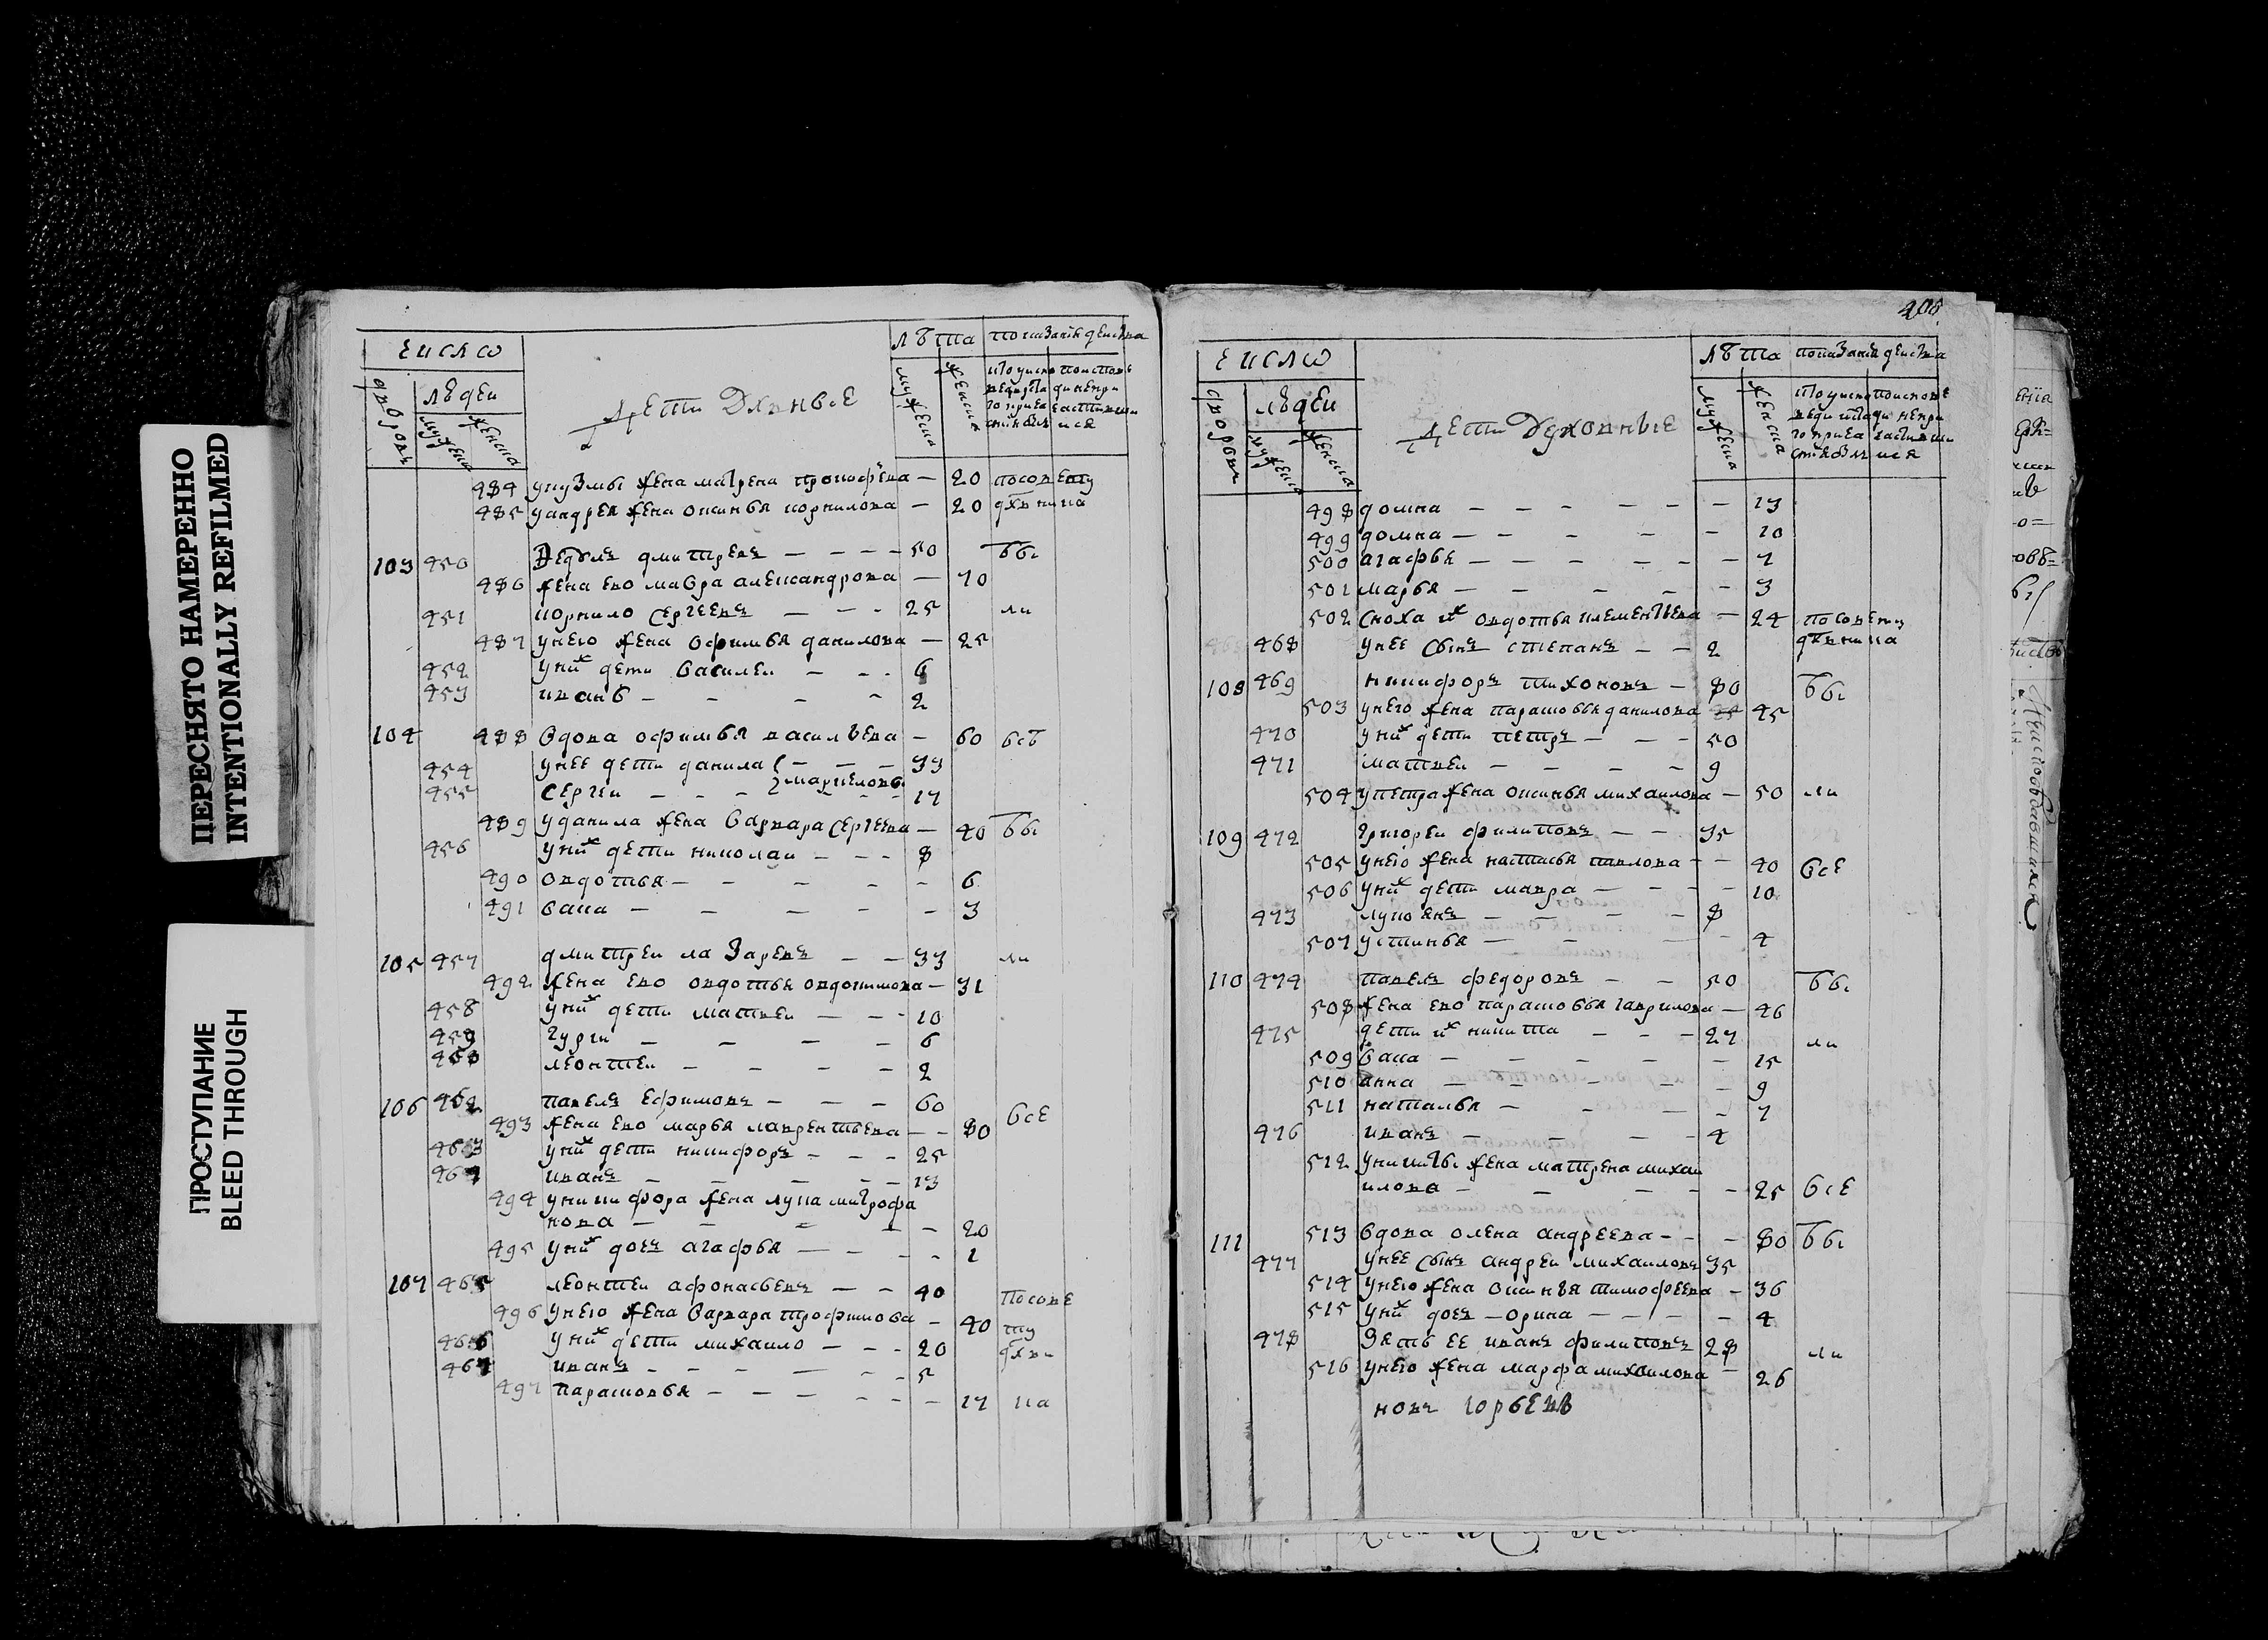 ПЕРЕСНЯТО НАМЕРЕННО
INTENTIONALLY REFILMED
ПРОСТУПАНИЕ
BLEED THROUGH
число
дворовъ
людеи
мужеска
женска
Дети Дхвныѣ
лѣта
мужеска
женска
показание деиства
484 у кузмы жена матрена прокофева — 20 посовету
485 у андрея жена оксинья корнилова — 20 дхвника
103 450 дмитревъ — — — 50 ббı
486 жена ево мавра александрова — 70
451 корнило сергеевъ — — - 25 ли
487 у него жена офимья данилова — 25
452 у них дети василеи — - - 6
453 иванъ — - - - 2
104 488 вдова офимья василѣева — 60 всѣ
454 у нее дети данила — — — 33
маркеловы
455 сергеи — — - - - - 17
489 у данила жена варвара сергеева — 40 ббı
456 у них дети николаи — - - 8
490 овдотья — - - - - 6
491 васа — — — - - 3
105 457 дмитреи лазаревъ — — 33 ли
492 жена ево овдотья овдокимова — 31
458 у них дети матвеи — — - 10
459 гуреи — — — — 6
460 леонтеи — — — — 2
106 462 павелъ ефимовъ — — — 60 все
493 жена ево марья лаврентьева — — 80
463 у них дети никифоръ — — — 25
464 иванъ — — — — — 13
494 у никифора жена лука митрофа
нова — — — — — 20
495 у них дочь агафья — — - - 1
107 465 леонтеи афонасьевъ — — 40 посове
496 у него жена варвара трофимова — 40 ту
466 у них дети михаило — — — 20 дхвн
467 иванъ — - — — - - 5
497 парасковья — — — - - — 17 ка
205
число
дворовъ
людеи
мужеска
женска
Дети Духовныѣ
лѣта
мужеска
женска
показание деиства
498 домна — — - — — — 13
499 домна — — - — — 10
500 агафья — — — — — — 7
501 марья — — — — — 3
502 сноха их овдотья клементиева — 24 посовету
468 у нее сынъ степанъ — — 2 дхвника
108 469 никифоръ тихоновъ — 80 ббı
503 у него жена парасковья данилова 45
470 у них дети петръ — — — 50
471 матвеи — — — — 9
504 у петра жена оксинья михаилова — 50 ли
109 472 григореи филиповъ — — 35
505 у него жена настасья павлова - — 40 все
506 у них дети мавра — — - — 10
473 лукоянъ — — — — 8
507 устинья — - — — 4
110 474 павелъ федоровъ — — 50 ббı
508 жена ево парасковья гаврилова — 46
475 дети их никита — — — 27 ли
509 васа — — — — — 15
510 анна — — — — — 9
511 наталья — - — — 7
476 иванъ — — — — 4
512 у никиты жена матрена михаи
илова — — — — — 25 все
111 513 вдова олена андреева - - — 80 ббı
477 у нее сынъ андреи михаиловъ 35
514 у него жена оксинья тимофеева — 36
515 у них дочь — орина — — - — 4
478 зять ее иванъ филиповъ 28 ли
516 у него жена марфа михаилова — 26
новъ юрьевъ